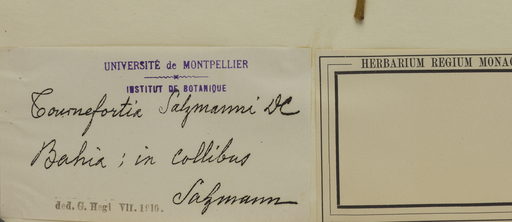 UNIVERSITÉ de MONTPELLIER
INSTITUT DE BOTANIQUE
Tournefortia Salzmanni DC
Bahia ; in collibus
Salzmann
ded. G. Hegi VII. 1910.
HERBARIUM REGIUM MONAC